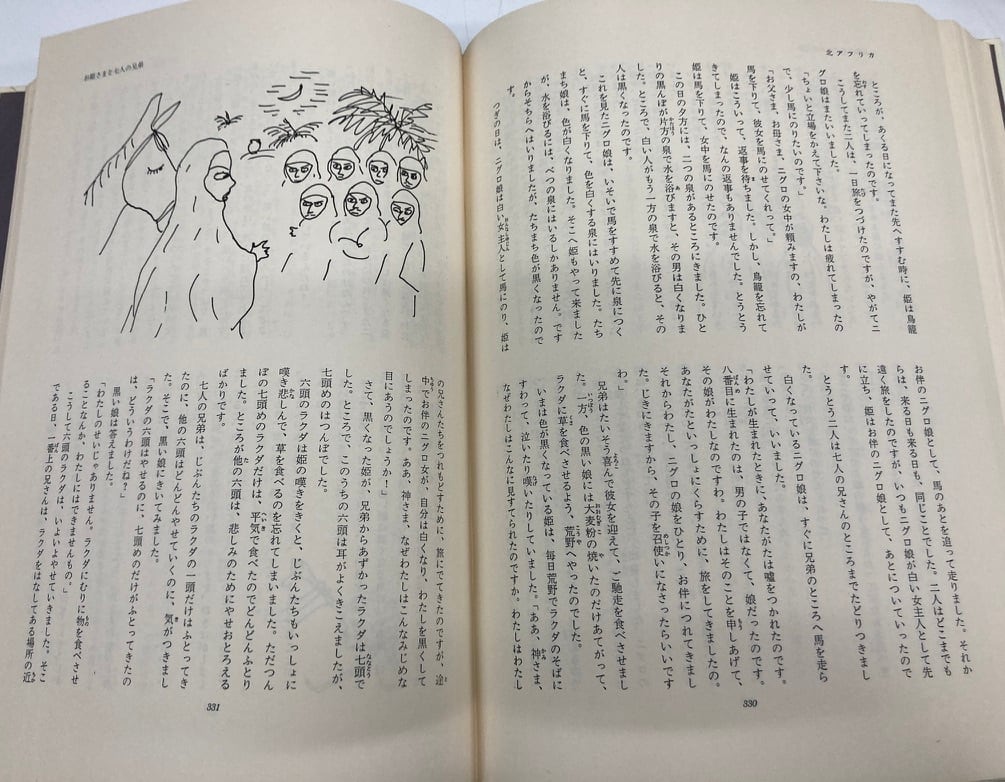 北アフリカ
ところが、あくる日になってまた先へすすむ時に、姫は烏籠
を忘れていってしまったのです。
こうしてまた二人は、一日旅をつづけたのですが、やがてニ
グロ娘はまたいいました。
「ちょいと立場をかえて下さいな。わたしは疲れてしまったの
で、少し馬にのりたいのです。」
「お父さま、お母さま、ニグロの女中が頼みますの、わたしが
馬を下りて、彼女を馬にのせてくれって。」
姫はこういって、返事を待ちました。しかし、鳥籠を忘れて
きてしまったので、なんの返事もありませんでした。とうとう
姫は馬を下りて、女中を馬にのせたのです。
この日の夕方には、二つの泉があるところにきました。ひと
りの黒んぼが片方の泉で水を浴びますと、その男は白くなりま
した。ところで、白い人がもう一方の泉で水を浴びると、その
人は黒くなったのです。
これを見たニグロ娘は、いそいで馬をすすめて先に泉につく
と、すぐに馬を下りて、色を白くする泉にはいりました。たち
まち娘は、色が白くなりました。そこへ姫もやって来ました
が、水を浴びるには、べつの泉にはいるしかありません。です
からそちらへはいりましたが、たちまち色が黒くなったので
す。
つぎの日は、ニグロ娘は白い女主人として馬にのり、姫は
お伴のニグロ娘として、馬のあとを追って走りました。それか
らは、来る日も来る日も、同じことでした。二人はどこまでも
遠く旅をしたのですが、いつもニグロ娘が白い女主人として先
に立ち、姫はお伴のニグロ娘として、あとについていったので
す。
とうとう二人は七人の兄さんのところまでたどりつきまし
た。
白くなっているニグロ娘は、すぐに兄弟のところへ馬を走ら
せていって、いいました。
「わたしが生まれたときに、あなたがたは嘘をつかれたのです。
八番目に生まれたのは、男の子ではなくて、娘だったのです。
その娘がわたしなのですわ。わたしはそのことを申しあげて、
あなたがたといっしょにくらすために、旅をしてきましたの。
それからわたし、ニグロの娘をひとり、お伴につれてきまし
た。じきにきますから、その子を召使いになさったらいいです
わ。」
兄弟はたいそう喜んで彼女を迎えて、ご馳走を食べさせまし
た。一方、色の黒い娘には大麦粉の焼いたのだけあてがって、
ラクダに草を食べさせるよう、荒野へやったのでした。
いまは色が黒くなっている姫は、毎日荒野でラクダのそばに
すわって、泣いたり嘆いたりしていました。「ああ、神さま、
なぜわたしはこんなに見すてられたのですか。わたしはわたし
330
お姫さまと七人の兄弟
の兄さんたちをつれもどすために、旅にでてきたのですが、途
中でお伴のニグロ女が、自分は白くなり、わたしを黒くして
しまったのです。ああ、神さま、なぜわたしはこんなみじめな
目にあうのでしょうか！」
さて、黒くなった姫が、兄弟からあずかったラクダは七頭で
した。ところで、このうちの六頭は耳がよくきこえましたが、
七頭めのはつんぼでした。
六頭のラクダは姫の嘆きをきくと、じぶんたちもいっしょに
嘆き悲しんで、草を食べるのを忘れてしまいました。ただつん
ぼの七頭めのラクダだけは、平気で食べたのでどんどんふとり
ました。ところが他の六頭は、悲しみのためにやせおとろえる
ばかりです。
七人の兄弟は、じぶんたちのラクダの一頭だけはふとってき
たのに、他の六頭はどんどんやせていくのに、気がつきまし
た。そこで、黒い娘にきいてみました。
「ラクダの六頭はやせるのに、七頭めのだけがふとってきたの
は、どういうわけだね？」
黒い娘は答えました。
「わたしのせいじゃありません。ラクダにむりに物を食べさせ
ることなんか、わたしにはできませんもの。」
こうして六頭のラクダは、いよいよやせていきました。そこ
である日、一番上の兄さんは、ラクダをはなしてある場所の近
331